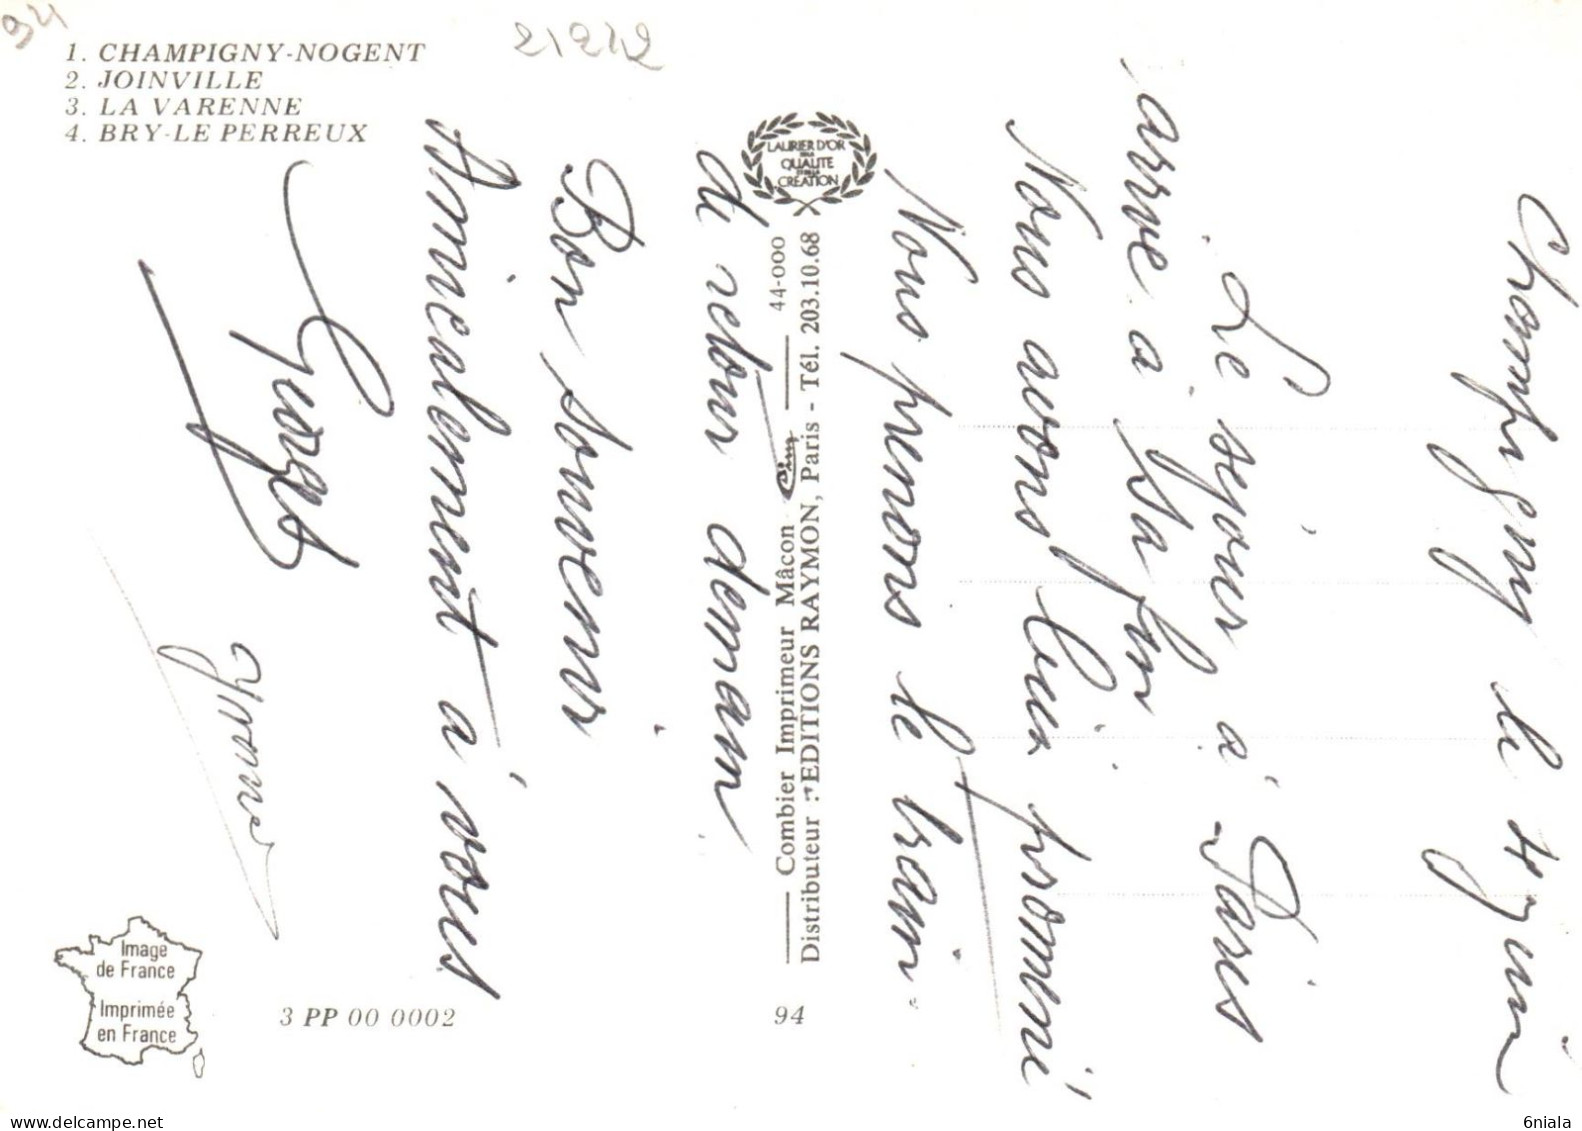 94
21212
1. CHAMPIGNY-NOGENT
2. JOINVILLE
3. LA VARENNE
4. BRY-LE PERREUX
LAURIER D'OR
DE LA
QUALITE
ET DE LA
CRÉATION
Combier Imprimeur Mâcon
44-000
Distributeur : EDITIONS RAYMON, Paris - Tél. 203.10.68
Champigny le 4 juin
Le sejour à Paris
arrive à sa fin
Nous avons bien promené
Nous prenons le train
de retour demain
Bon souvenir
Amicalement à vous
Georges
Yvonne
Image
de France
Imprimée
en France
3 PP 00 0002
94
6niala